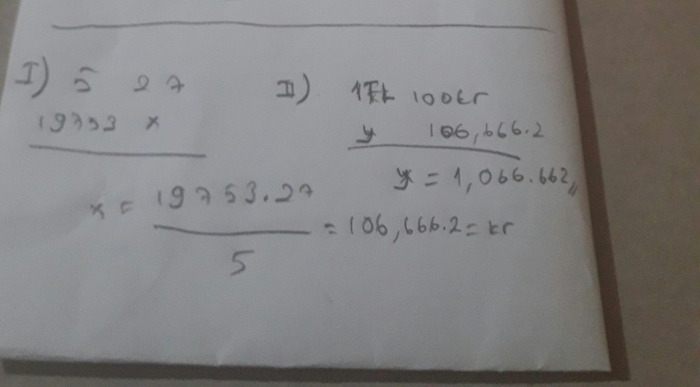 I) 5 27
19753 x
x = 19753.27
5
= 106,666.2 = kr
II) 1TL 100kr
y 106,666.2
y = 1,066.662,,